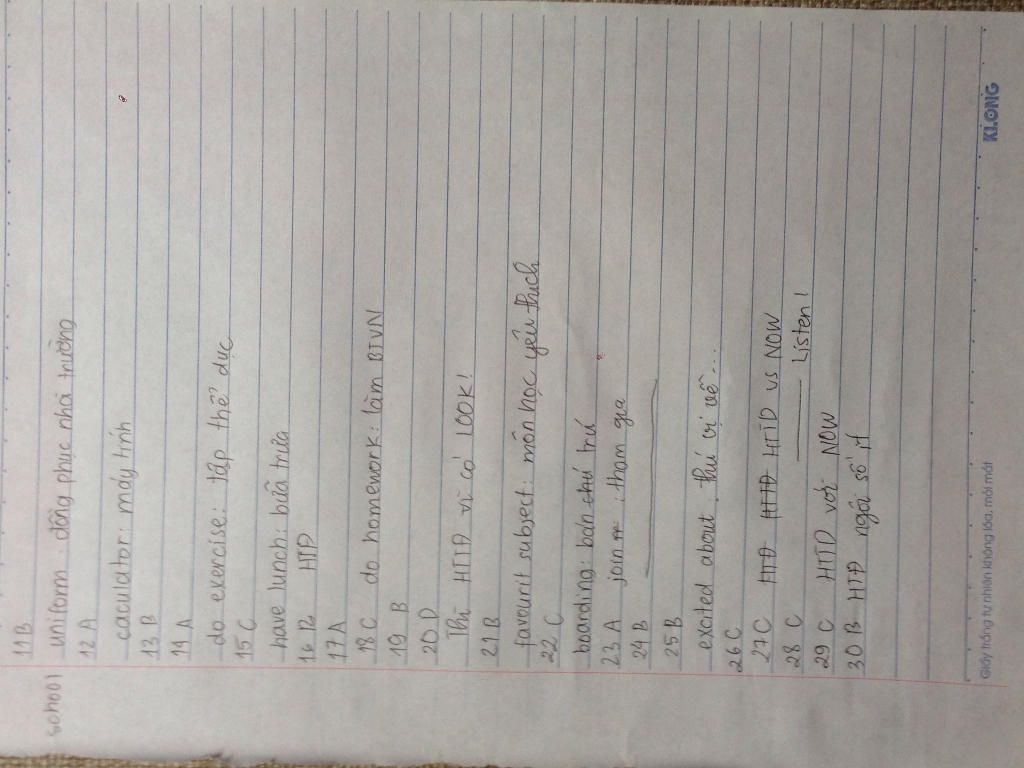 11 B
school uniform: đồng phục nhà trường
12 A
caculator: máy tính
13 B
14 A
do exercise: tập thể dục
15 C
have lunch: bữa trưa
16 B HTĐ
17 A
18 C do homework: làm BTVN
19 B
20 D
Thì HTTD vì có LOOK!
21 B
favourit subject: môn học yêu thích
22 C
boarding: bán thú trú
23 A join m: tham gia
24 B
25 B
excited about: thú vị về...
26 C
27 C HTĐ HTTĐ HTTD vs NOW
28 C Listen!
29 C HTTD với NOW
30 B HTĐ ngôi số ít
Giấy trắng tự nhiên không lóa, mỏi mắt
KLONG